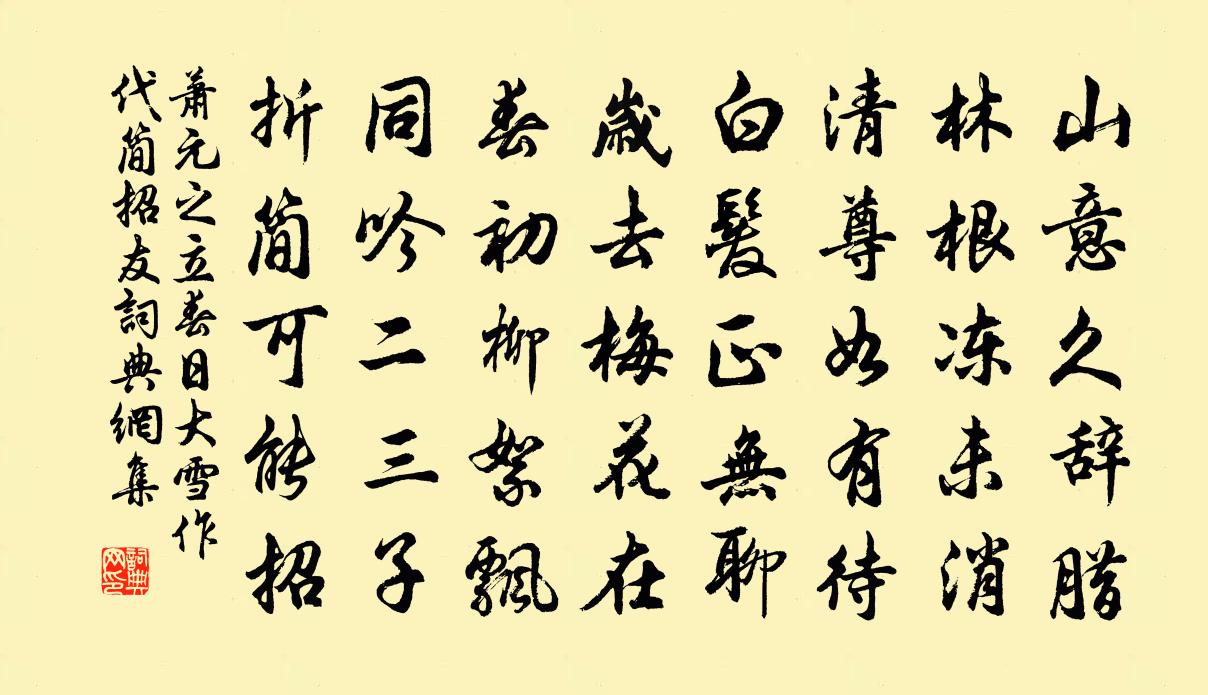 山意久辞腊
林根冻未消
清尊如有待
白髮正無聊
歲去梅花在
春初柳絮飄
同吟二三子
折简可能招
萧元之立春日大雪作
代简招友詞典網集
詞典
网印